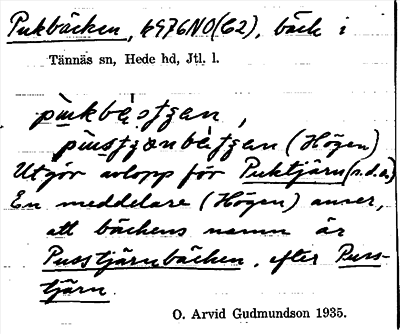 Pukbäcken, k976NO(C2), bäck i
Tännäs sn, Hede hd, Jtl. l.
(Högen)
Utgör avlopp för Puktjärn (s.d.o.)
En meddelare (Högen) anser,
att bäckens namn är
Pusstjärnbäcken, efter Puss-
tjärn.
O. Arvid Gudmundson 1935.